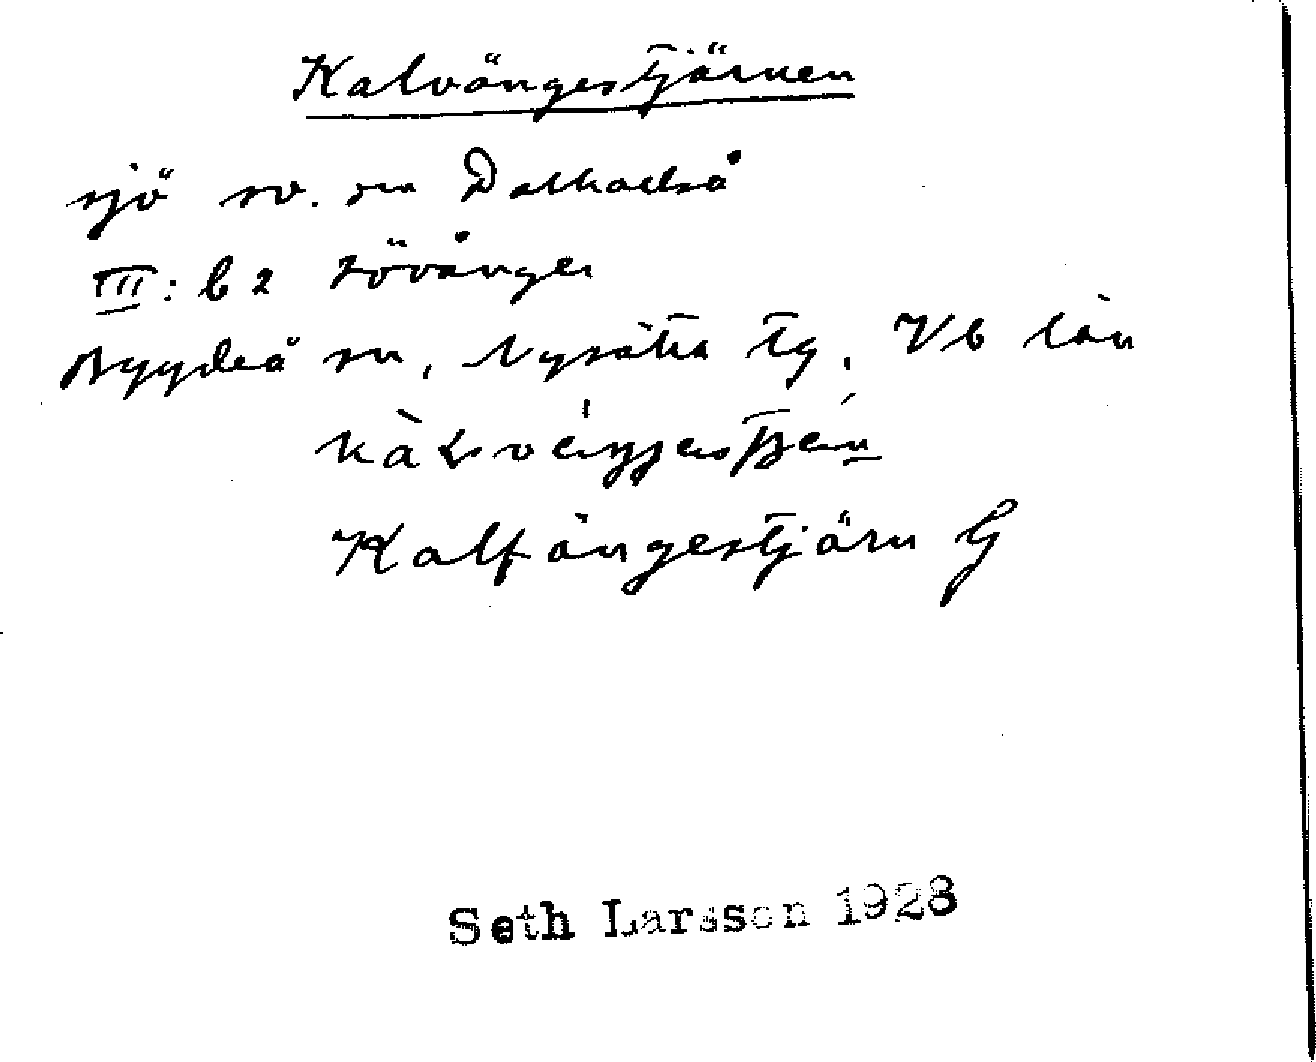 Kalvängestjärnen
sjö sv. om Dalkarlså
III: b 2 Lövånger
Bygdeå sn, Nysätra tg. Vb län
Kalfängestjärn G
Seth Larsson 1928